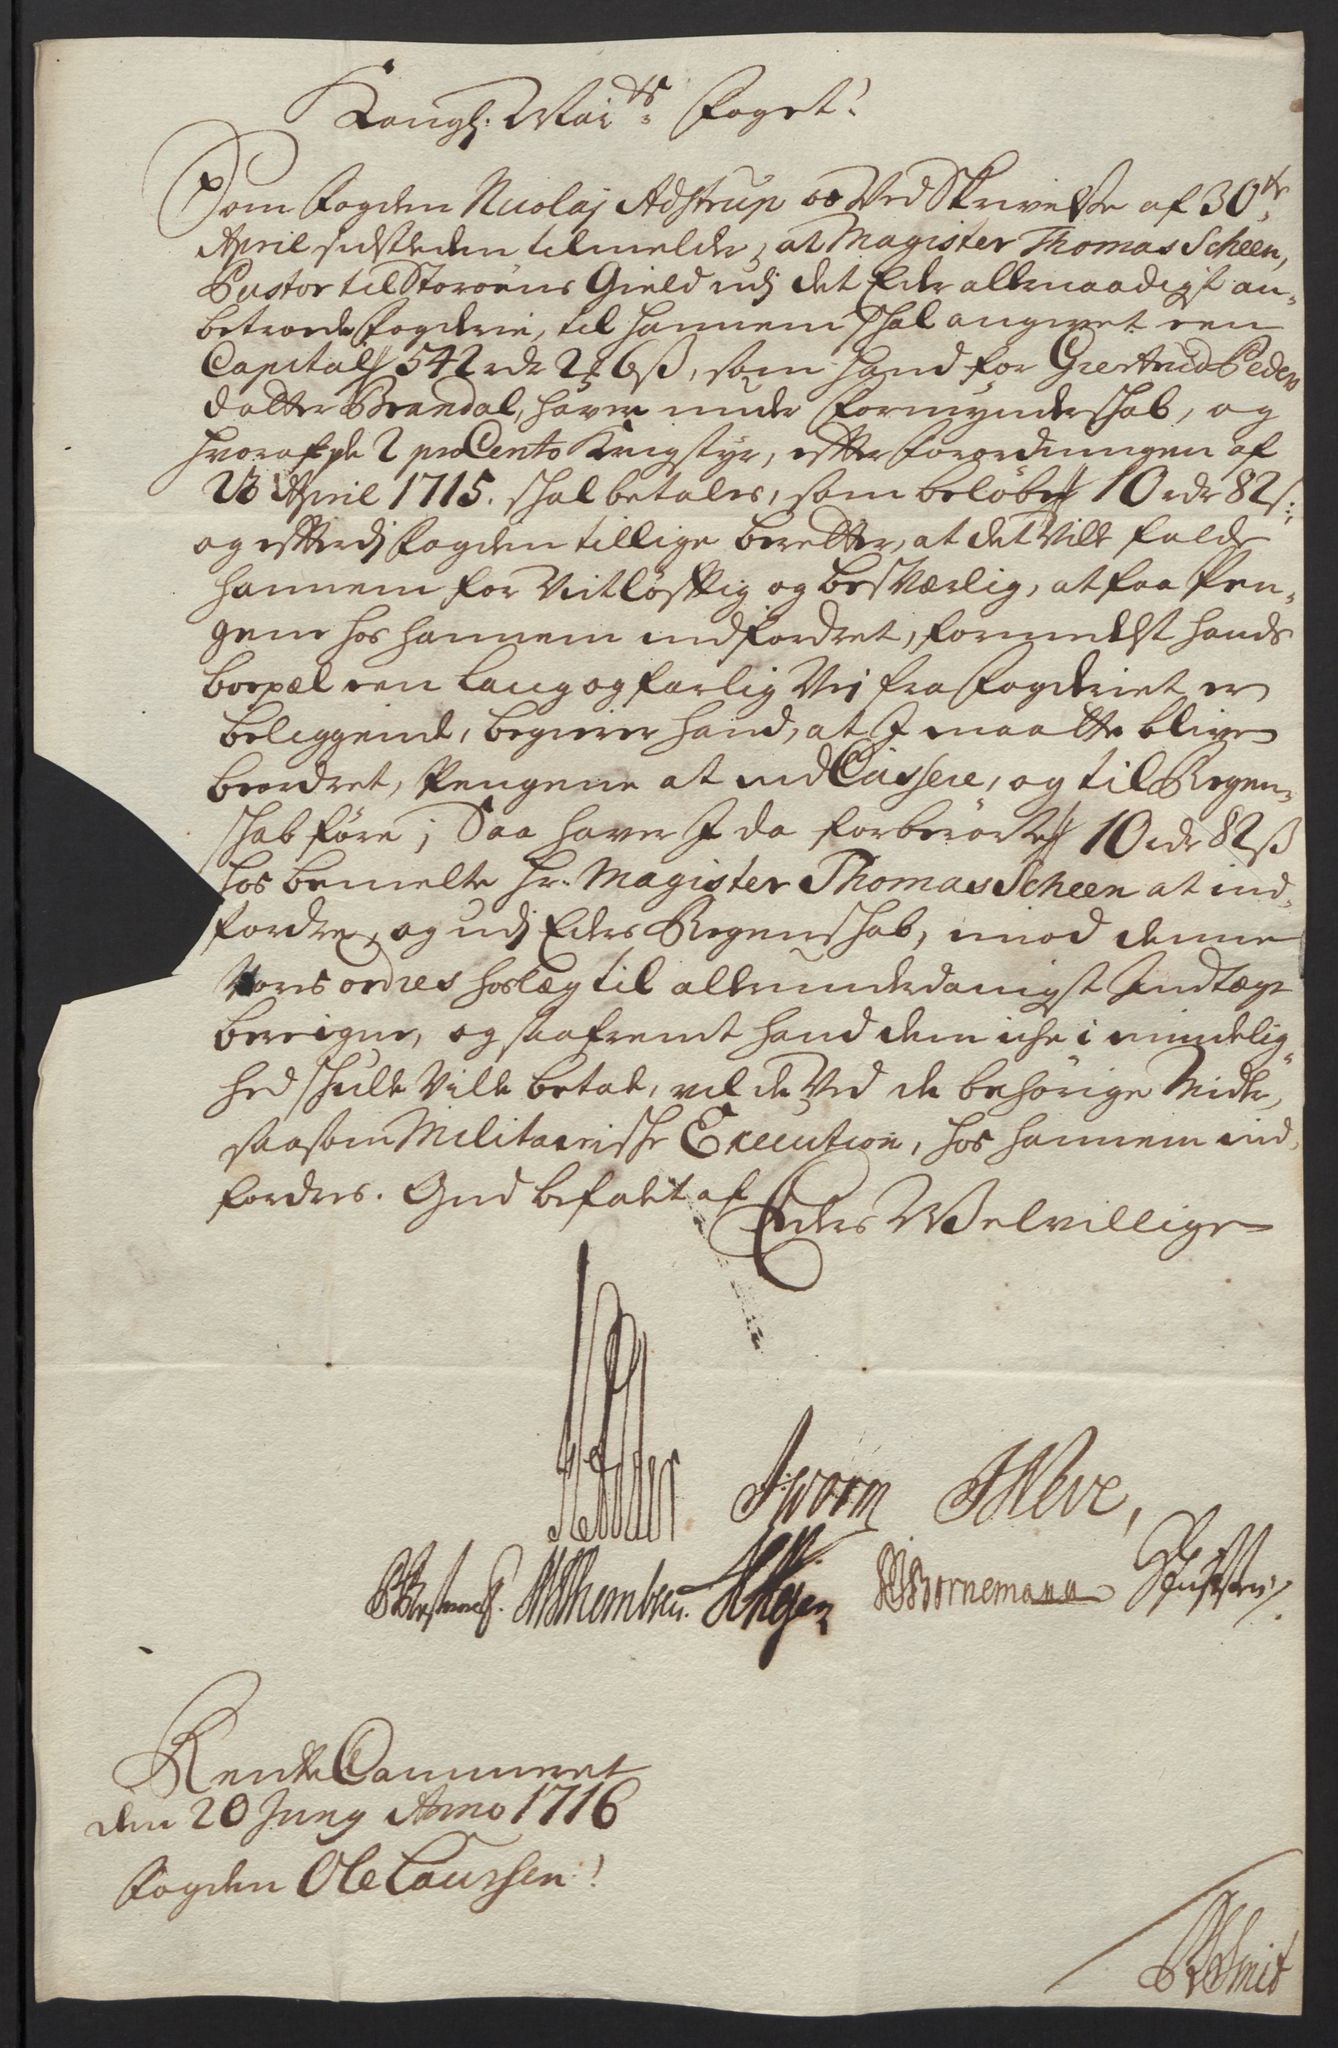 Kongl: Maj:ts Foget!
Som Fogden Nicolaj Astrup os ved Skrivelse af 30te
April sidstleden tilmelder, at Magister Thomas Scheen,
Pastor til Storöens Gield udj det Eder allernaadigst an-
betroede Fogderie, til hannem skal angivet een
Capital 542 rdr 2 6 ß, som hand for Giertrud Peders
datter Brandal, haver under Formynderskab, og
hvoraf de 2 pro Cento Krigstyr, efter Forordningen af
23 April 1715. skal betales, som beløber 10 rdr 82 s:,
og efterdj Fogden tillige beretter, at det vill falde
hannem for vitløftig og besværlig, at faa Pen-
gene hos hannem indfordret, formedelst hands
boepæl een lang og farlig Vej fra Fogderiet er
beliggende, begierer hand, at I maatte blive
beordret, Pengene at ind Cassere, og til Regen-
skab føre; Saa haver I da forberörte 10 rdr 82 ß
hos bemelte Hr. Magister Thomas Scheen at ind-
fordre, og udj Eders Regenskab, imod denne
Vores ordres hoslæg til allerunderdanigst Indtægt
beregne, og saafremt hand dem iche i mindelig-
hed skulle ville betale, vil de ved de behörige Midler,
saasom Militairische Execution, hos hannem ind-
fordres. Gud befalet af
Eders Velvillige
J Worm
Bornemann
Rente Cammeret
den 20 Juny Anno 1716
Fogden Ole Laursen!
Smit